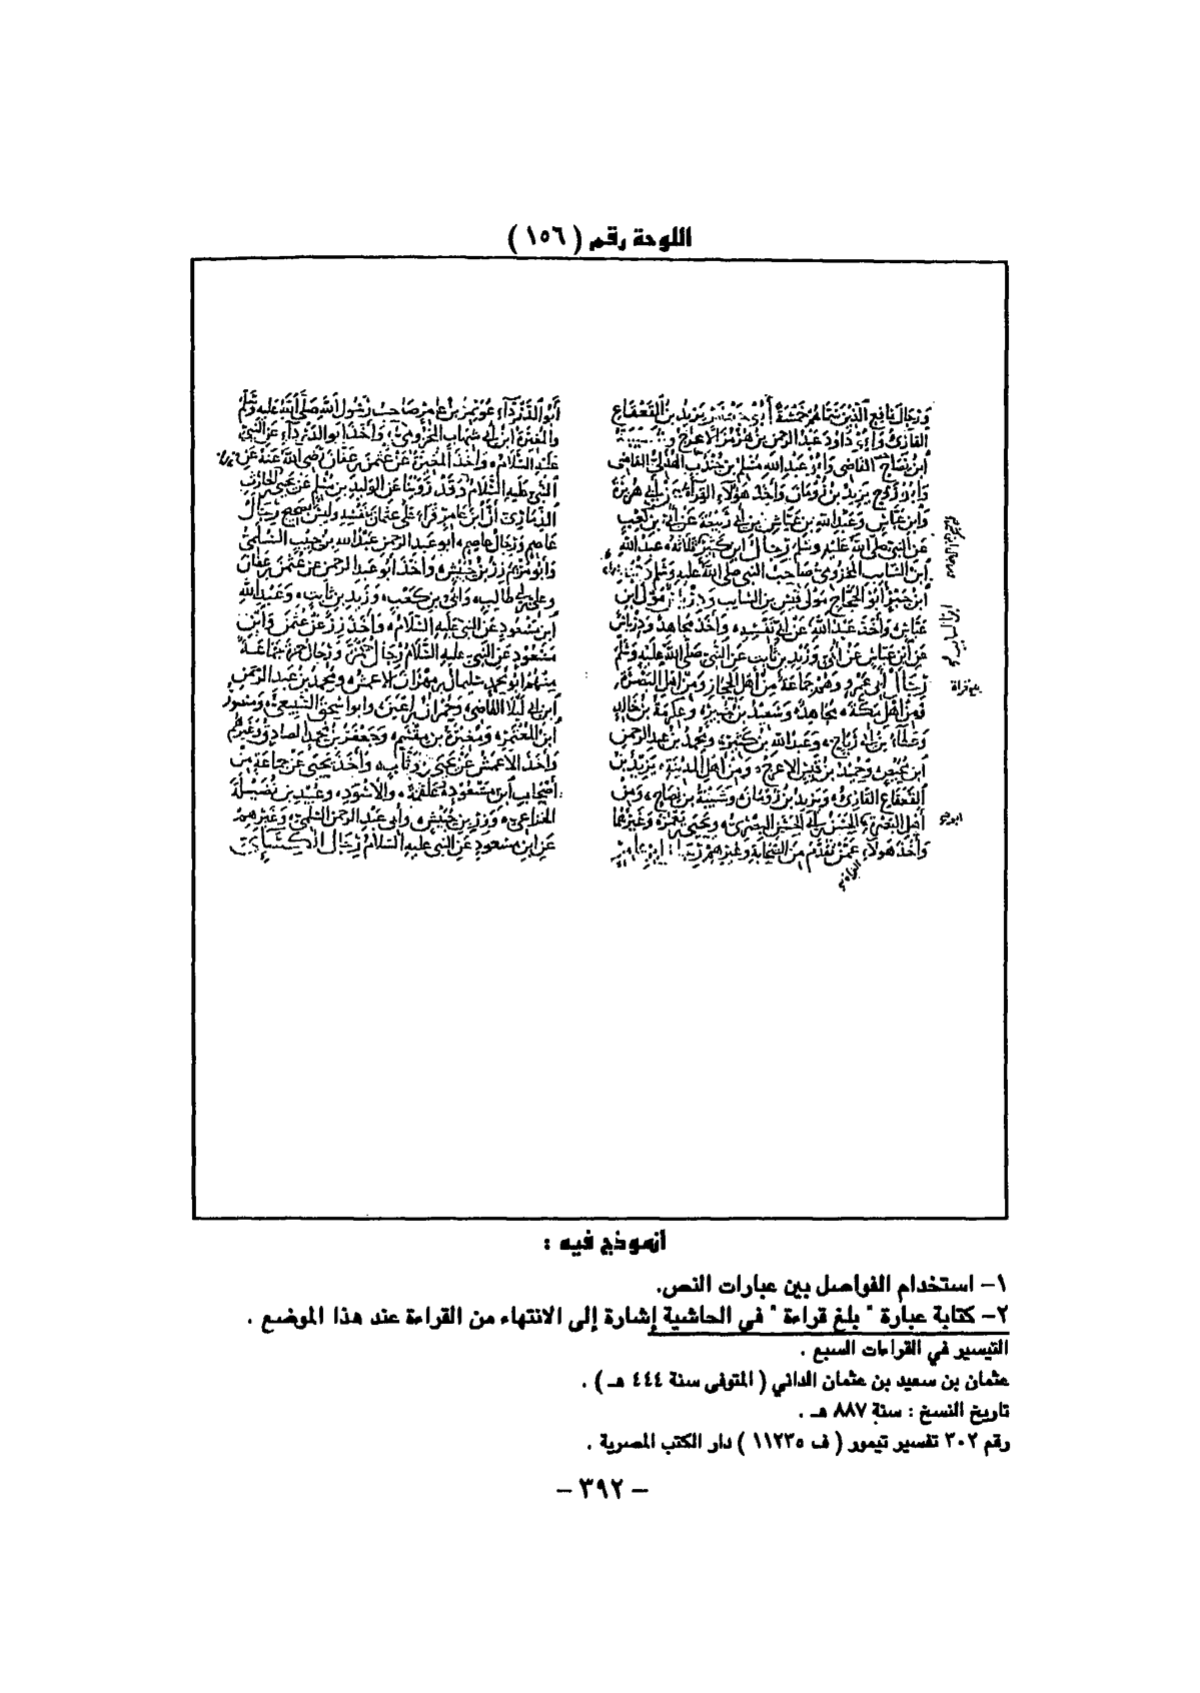 اللوحة رقم ( ١٥٦ )
ورجال نافع الذين سماهم خمسة أبو جعفر يزيد بن القعقاع
القارئ وأبو داود عبد الرحمن بن هرمز الأعرج و
ابن نصاح القاضي وأبو عبد الله مسلم بن جندب الهذلي القاضي
وأبو روح يزيد بن رومان وأخذ هؤلاء القراءة عن أبي هريرة
وابن عباس وعبد الله بن عياش بن أبي ربيعة عن أبي بن كعب
عن النبي صلى الله عليه وسلم رجال ابن كثير ثلاثة عبد الله
ابن السايب المخزومي صاحب النبي صلى الله عليه وسلم
ابن جبر أبو الحجاج مولى قيس بن السايب ودرباس مولى ابن
عباس وأخذ عبد الله عن أبي نفسه وأخذ مجاهد ودرباس
عن ابن عباس عن أبي وزيد بن ثابت عن النبي صلى الله عليه وسلم
رجال أبي عمرو وهم جماعة من أهل الحجاز ومن أهل البصرة
فمن أهل مكة مجاهد وسعيد بن جبير وعكرمة بن خالد
وعطاء بن أبي رباح وعبد الله بن كثير ومحمد بن عبد الرحمن
ابن محيصن وحميد بن قيس الأعرج ومن أهل المدينة يزيد بن
القعقاع القارئ ويزيد بن رومان وشيبة بن نصاح ومن
أهل البصرة الحسن بن أبي الحسن البصري ويحيى بن يعمر وغيرهما
وأخذ هولاء عمن تقدم من الصحابة وغيرهم رجال ابن عامر
بلغ قراة
أبو الدرداء عويمر بن عامر صاحب رسول الله صلى الله عليه وسلم
والمغيرة ابن أبي شهاب المخزومي وأخذ أبو الدرداء عن النبي
عليه السلام وأخذ المغيرة عن عثمن بن عفان رضي الله عنه عن
النبي عليه السلام وقد روينا عن الوليد بن مسلم عن يحيى الحارث
الذماري أن ابن عامر قرأ على عثمان نفسه وليس بصحيح رجال
عاصم ورجال عاصم أبو عبد الرحمن عبد الله بن حبيب السلمي
وأبو مريم زر بن حبيش وأخذ أبو عبد الرحمن عن عثمن بن عفان
وعلي بن أبي طالب وأبي بن كعب وزيد بن ثابت وعبد الله
ابن مسعود عن النبي عليه السلام وأخذ زر عن عثمن وابن
مسعود عن النبي عليه السلام رجال حمزة ورجال حمزة جماعة
منهم أبو محمد سليمان بن مهران الأعمش ومحمد بن عبد الرحمن
ابن أبي ليلا القاضي وحمران بن أعين وابو اسحق السبيعي ومنصور
ابن المعتمر ومغيرة بن مقسم وجعفر بن محمد الصادق وغيرهم
وأخذ الأعمش عن يحيى بن وثاب وأخذ يحيى عن جماعة من
أصحاب ابن مسعود علقمة والأسود وعبيد بن نضيلة
الخزاعي وزر بن حبيش وأبي عبد الرحمن السلمي وغيرهم
عن ابن مسعود عن النبي عليه السلام رجال الكسائي
أنموذج فيه :
١- استخدام الفواصل بين عبارات النص.
٢- كتابة عبارة " بلغ قراءة " في الحاشية إشارة إلى الانتهاء من القراءة عند هذا الموضع .
التيسير في القراءات السبع .
عثمان بن سعيد بن عثمان الداني ( المتوفى سنة ٤٤٤ هـ ) .
تاريخ النسخ : سنة ٨٨٧ هـ .
رقم ٣٠٢ تفسير تيمور ( ف ١١٢٣٥ ) دار الكتب المصرية .
– ٣٩٢ –